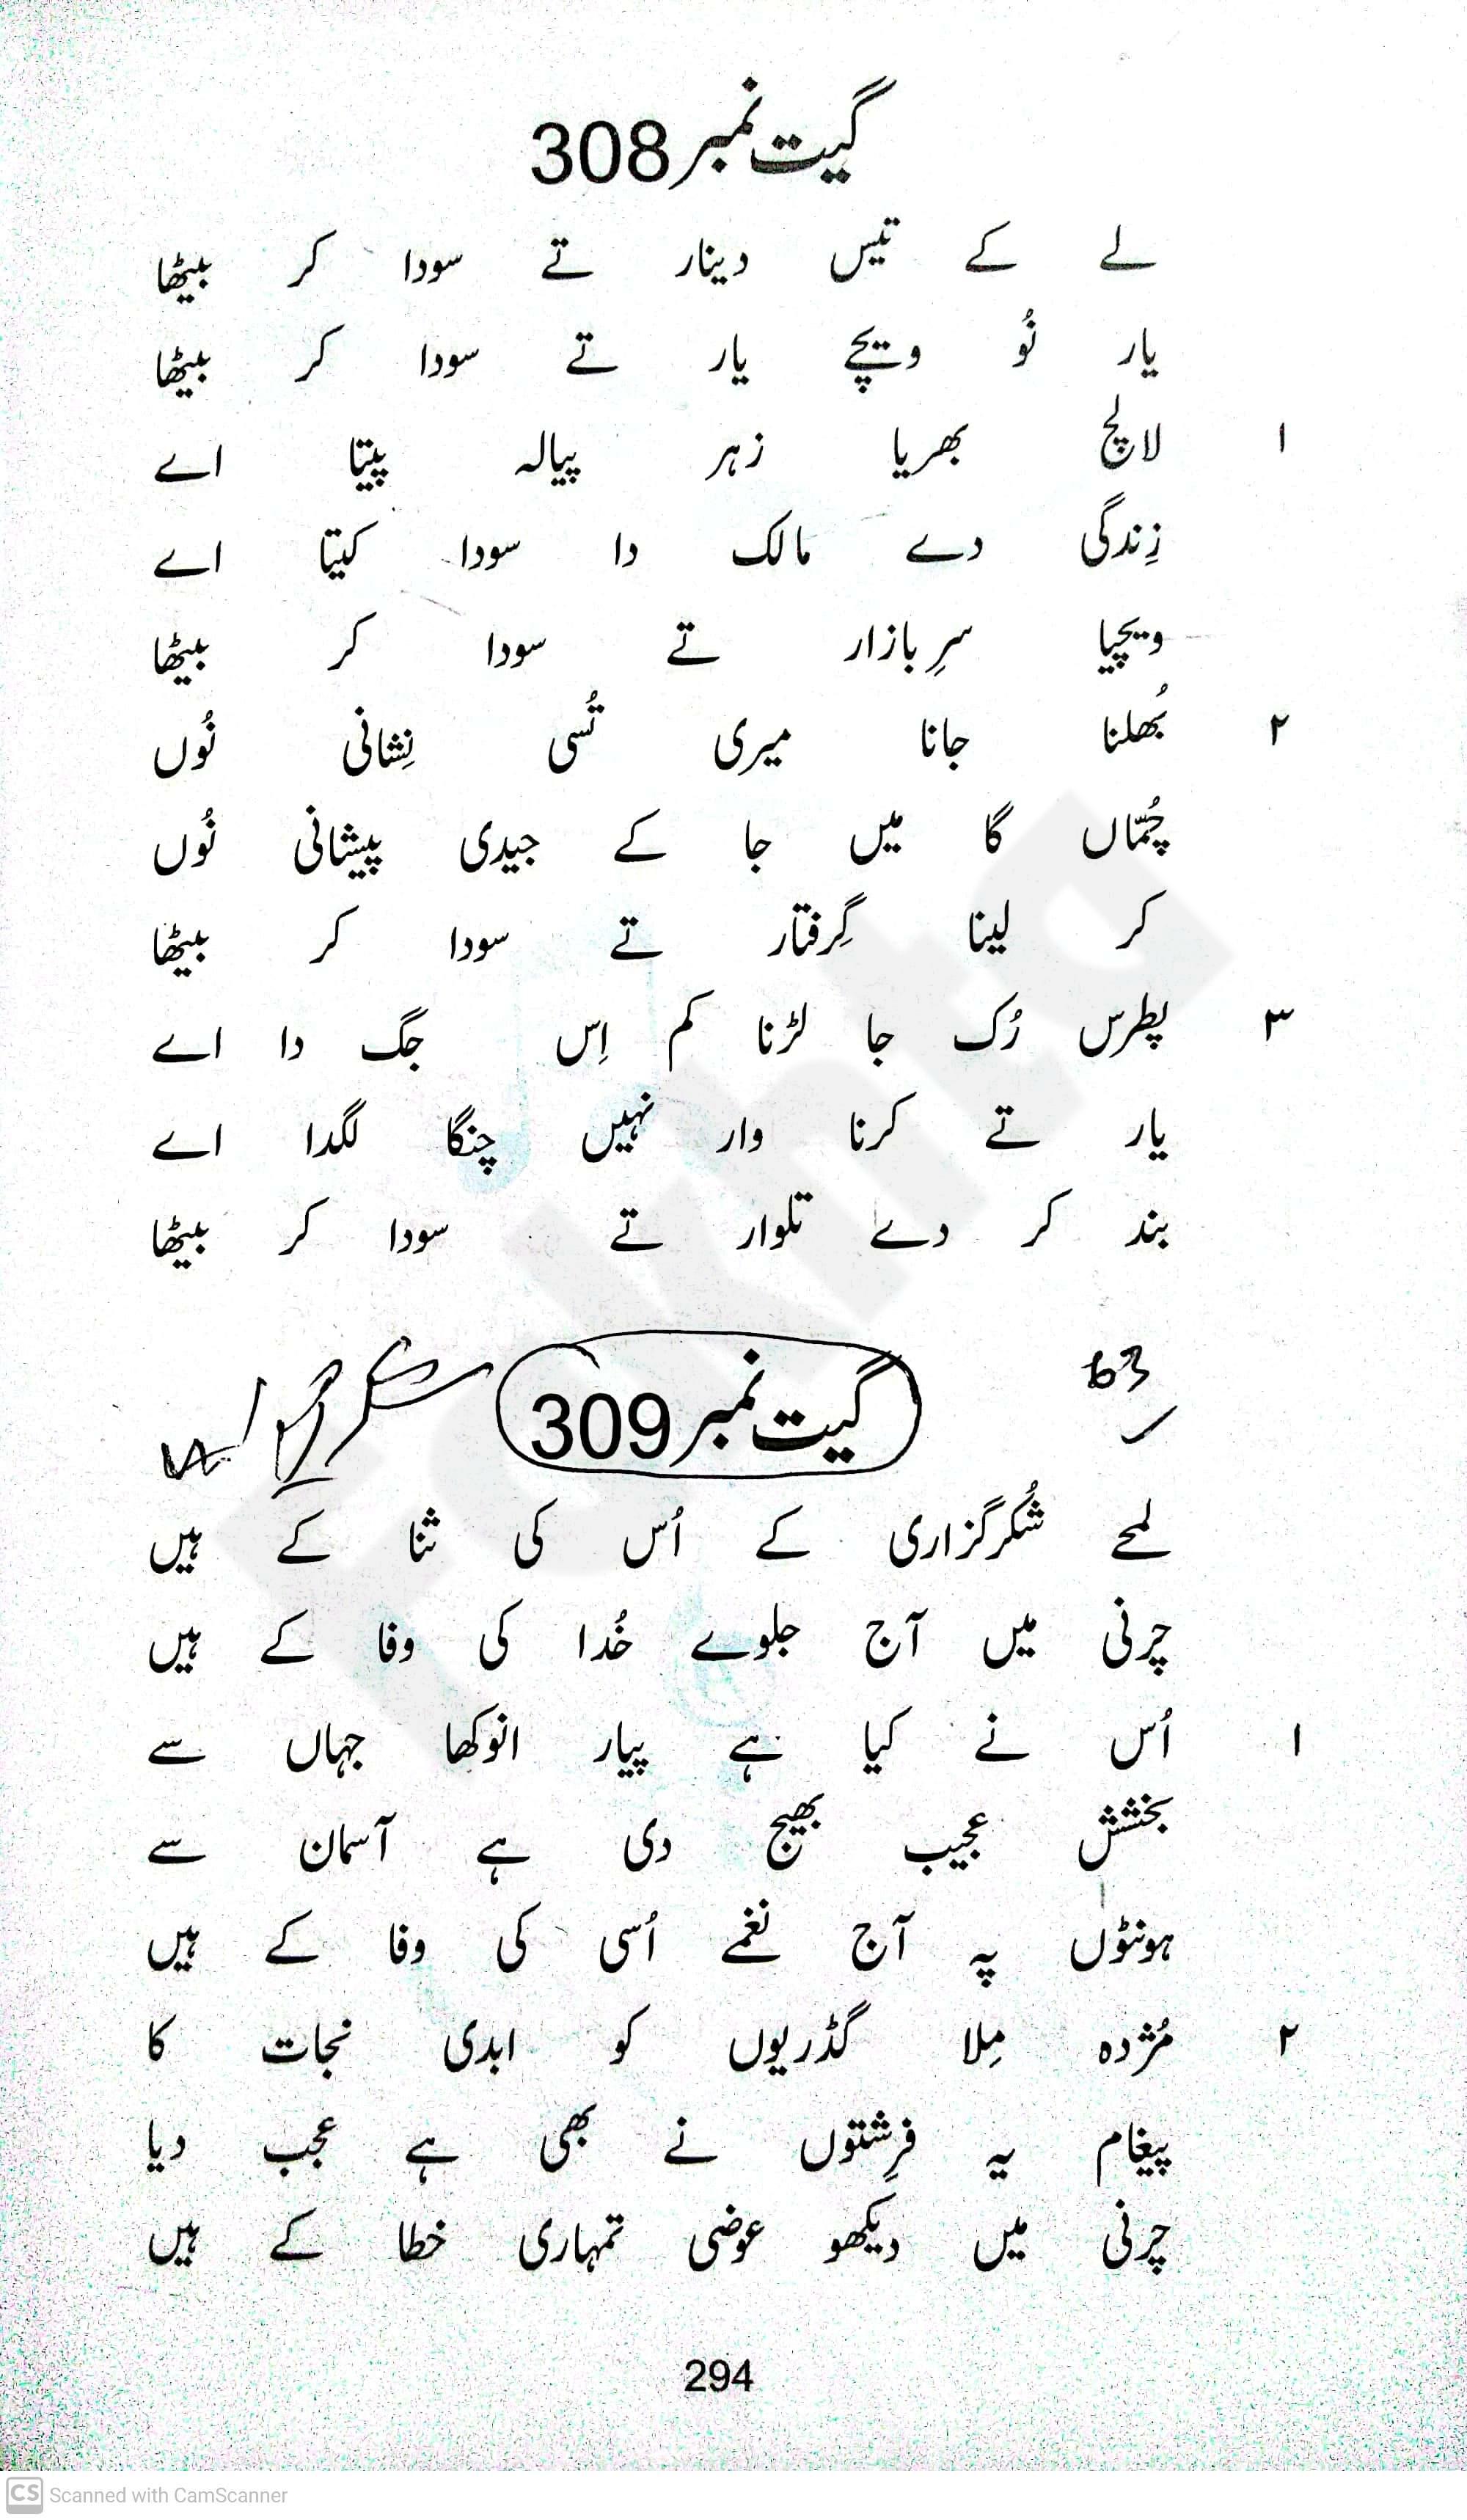 گیت نمبر 308
لے کے تیس دینار تے سودا کر بیٹھا
یار نُو ویچے یار تے سودا کر بیٹھا
۱ لالچ بھریا زہر پیالہ پیتا اے
زِندگی دے مالک دا سودا کیتا اے
ویچیا سرِ بازار تے سودا کر بیٹھا
۲ بُھلنا جانا میری تُسی نِشانی نُوں
چُمّاں گا میں جا کے جیدی پیشانی نُوں
کر لینا گِرفتار تے سودا کر بیٹھا
۳ پطرس رُک جا لڑنا کم اِس جگ دا اے
یار تے کرنا وار نہیں چنگا لگدا اے
بند کر دے تلوار تے سودا کر بیٹھا
63
گیت نمبر 309
لمحے شُکرگزاری کے اُس کی ثنا کے ہیں
چرنی میں آج جلوے خُدا کی وفا کے ہیں
۱ اُس نے کیا ہے پیار انوکھا جہاں سے
بخشش عجیب بھیج دی ہے آسمان سے
ہونٹوں پہ آج نغمے اُسی کی وفا کے ہیں
۲ مُژدہ مِلا گڈریوں کو ابدی نجات کا
پیغام یہ فرِشتوں نے بھی ہے عجب دیا
چرنی میں دیکھو عوضی تمہاری خطا کے ہیں
294
Fakhta
CS Scanned with CamScanner